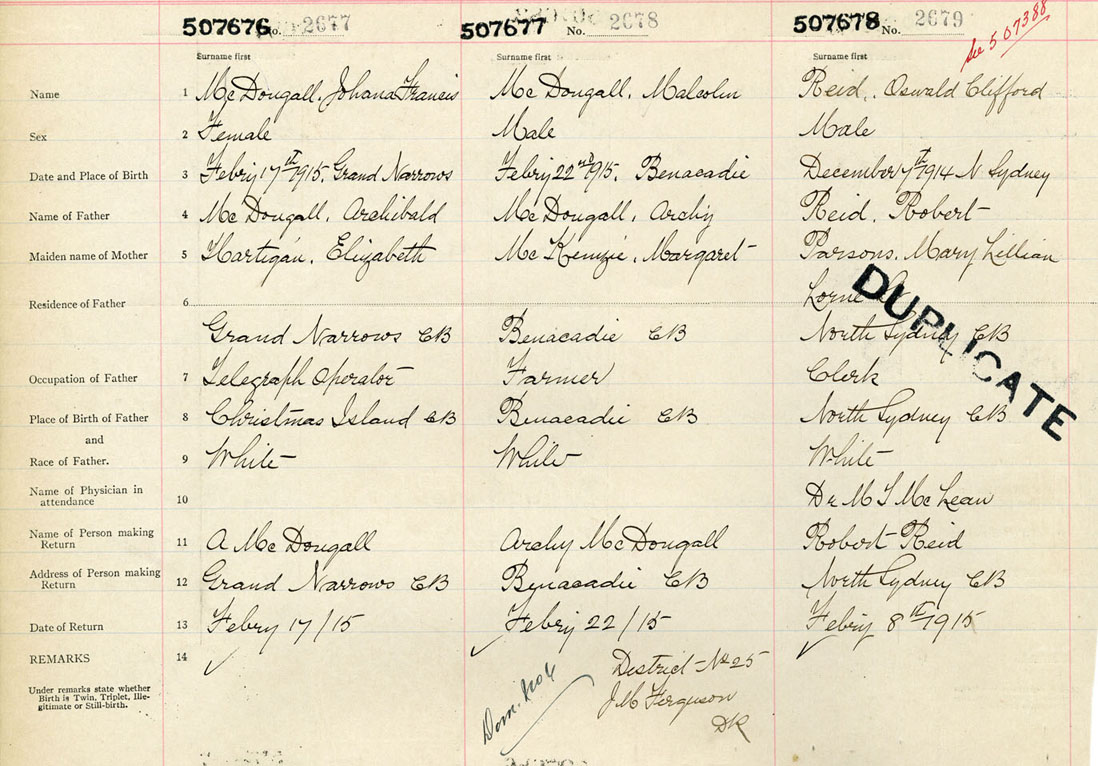 507676 No. 2677 507677 No. 2678 507678 No. 2679
See 507388
Surname first Surname first Surname first
Name 1 McDougall, Johana Francis Mc Dougall, Malcolm Reid, Oswald Clifford
Sex 2 Female Male Male
Date and Place of Birth 3 Febry 17th 1915, Grand Narrows Febry 22nd 1915, Benacadie December 17th 1914 N Sydney
Name of Father 4 McDougall, Archibald McDougall, Archy Reid, Robert
Maiden name of Mother 5 Hartigan, Elizabeth McKenzie, Margaret Parsons, Mary Lillian
Residence of Father 6 Lorne
Grand Narrows CB Benacadie CB North Sydney CB
DUPLICATE
Occupation of Father 7 Telegraph Operator Farmer Clerk
Place of Birth of Father 8 Christmas Island CB Benacadie CB North Sydney CB
and
Race of Father. 9 White White White
Name of Physician in
attendance 10 Dr M McLean
Name of Person making
Return 11 A McDougall Archy McDougall Robert Reid
Address of Person making
Return 12 Grand Narrows CB Benacadie CB North Sydney CB
Date of Return 13 Febry 17/15 Febry 22/15 Febry 8th 1915
REMARKS 14
Under remarks state whether
Birth is Twin, Triplet, Ille-
gitimate or Still-birth.
District No 25
J M Ferguson
DR
Dom.